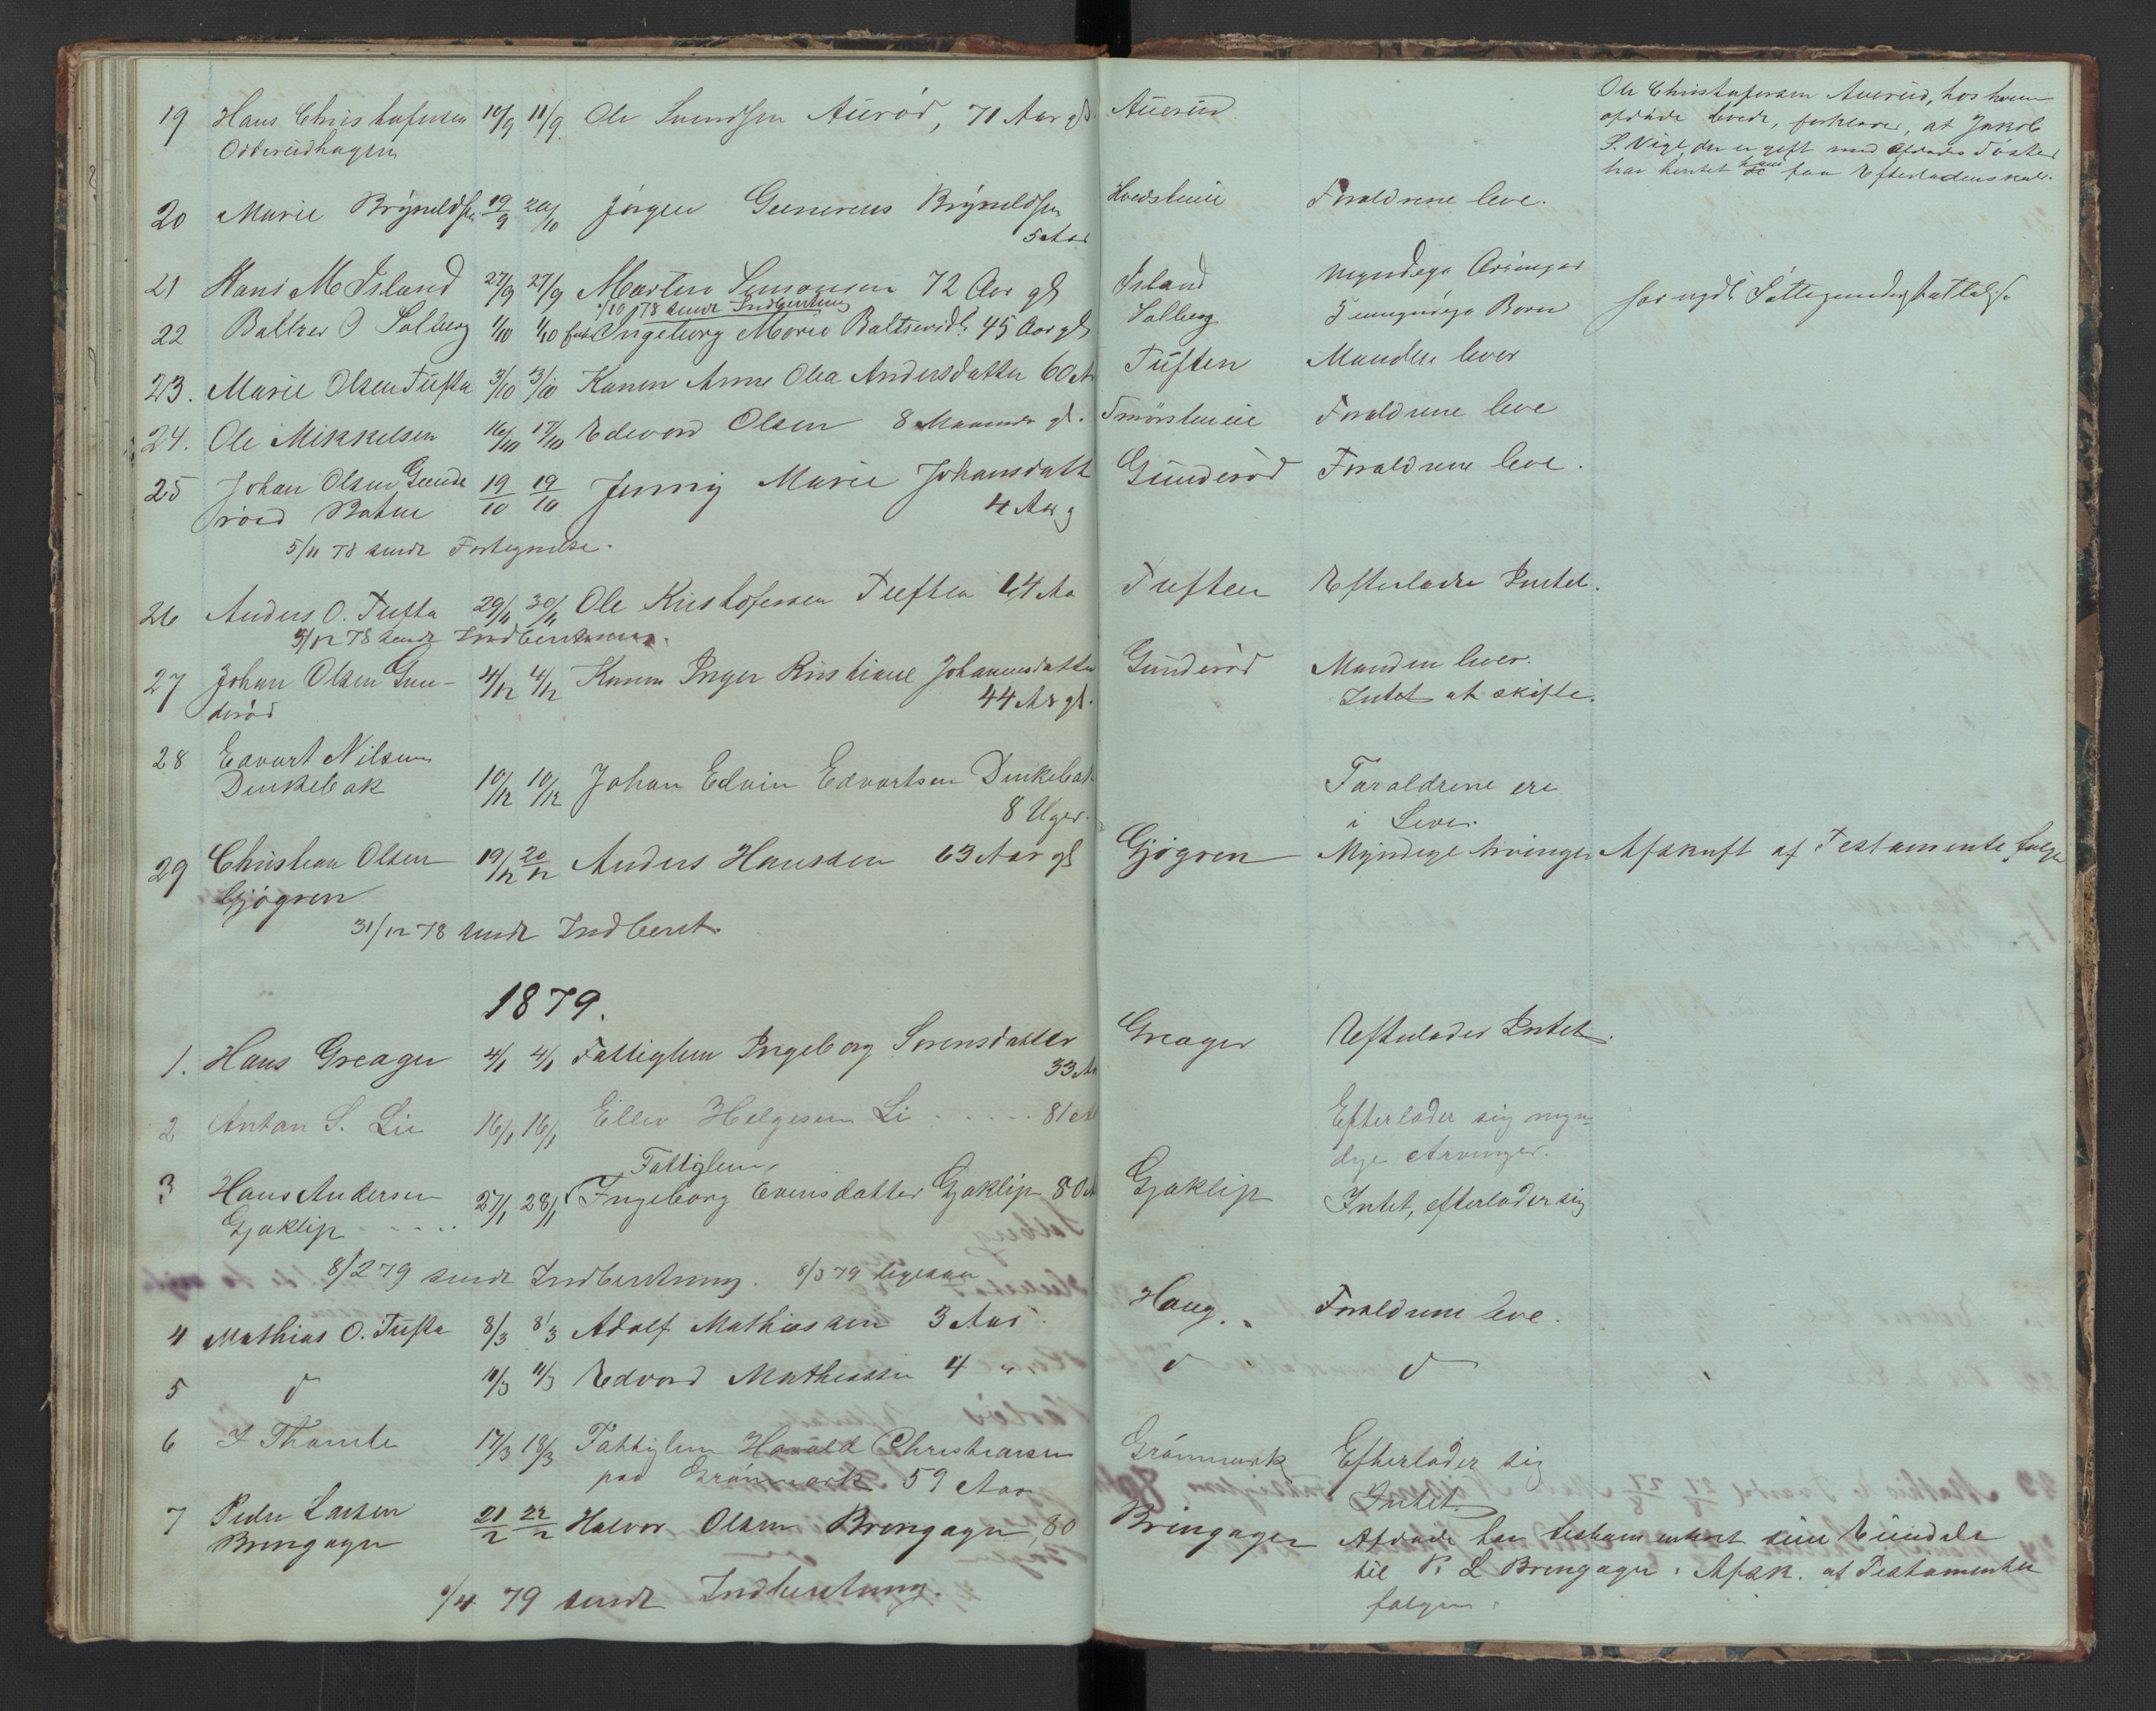 19 Hans Christofersen 10/9 11/9 Ole Svendsen Auerød, 71 Aar gl. Auerud
Odderudhagen
Ole Christofersen Auerud, hos hvem
afdøde boede, forklarer, at Jakob
S. Vige, der er gift med Afdødes Søster
har hentet hans faa Efterladenskab.
20 Marie Bryneldsen 19/9 20/10 Jørgen Severeus Bryneldsen Hvedsteneie Forældrene leve.
5 Aar
21 Hans M Island 27/9 27/9 Martin Simonsen 72 Aar gl Island myndige Arvinger
1/10 78 sendt Indberetning
22 Baltzer O Solberg 1/10 1/10 Ingeborg Marie Baltsersd. 45 Aar gl Solberg 5 umyndige Børn har nydt Fattigunderstøttelse
23. Marie Olsen Tufta 3/10 3/10 Konen Anne Olea Andersdatter 60 A Tuften Manden lever
24. Ole Mikkelsen 16/10 17/10 Edvard Olsen 8 Maaneder gl. Smørsteneie Forældrene leve
25 Johan Olsen Gunde 19/10 19/10 Jenny Marie Johansdatt Gunderød Forældrene leve.
røed Batne 4 Aar g
5/11 78 sendt Fortegnelse.
26 Anders O. Tufta 29/11 30/11 Ole Kristofersen Tuften 64 Aa Tuften Efterlader Intet.
3/12 78 sendt Indberetning.
27 Johan Olsen Gun- 4/12 4/12 Konen Inger Kristiane Johannesdatter Gunderød Manden lever.
derød 44 Ar gl. Intet at skifte.
28 Edvart Nilsen
Dunkebak 10/12 10/12 Johan Edvin Edvartsen Dunkebak Forældrene ere
8 Uger. i Live.
29 Christian Olsen 19/12 20/12 Anders Hanssen 63 Aar gl Gjøgren Myndige Arvinger Afskrift af Testamente følger
Gjøgren
31/12 78 sendt Indberet.
1879.
1. Hans Greager 4/1 4/1 Fattiglem Ingeborg Sørensdatter Greager Efterlader Intet.
33 Aa
2 Anton S. Lie 16/1 16/1 Ellev Helgesen Li . . . . . 81 A Efterlader sig myn-
dige Arvinger.
Fattiglem,
3 Hans Andersen 27/1 28/1 Ingeborg Evensdatter Gjøklip 80 A Gjøklip Intet, efterlader sig
Gjøklip . . . . .
8/2 79 sendt Indberetning. 8/3 79 ligesaa
4 Mathias O. Tufta 8/3 8/3 Adolf Mathiassen 3 Aar. Haug. Forældrene leve.
5 d 11/3 11/3 Edvard Mathiassen 4 " d d
6 I Thomte 17/3 18/3 Fattiglem Harald Christiansen Grønmark Efterlader sig
paa Grønmark 59 Aar Intet.
7 Peder Larsen 21/2 22/2 Halvor Olsen Bringager, 80 Bringager Afdøde har testamenteret sine Eiendele
Bringager til P. L Bringager. Afsk. af Testamentet
følger.
1/4 79 sendt Indberetning.